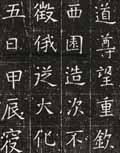 道尊望重欽
西園造次不
徵俄從大化
五日甲辰寑